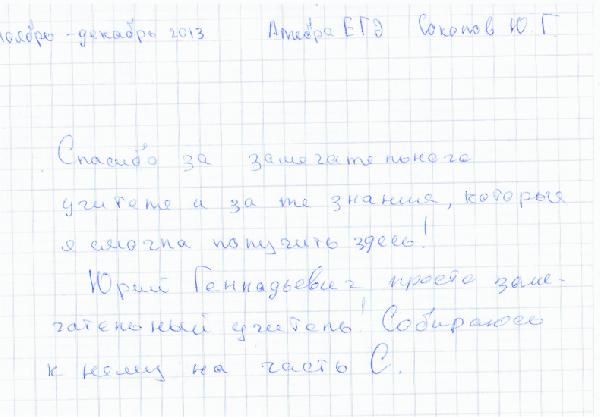 ноябрь - декабрь 2013 Алгебра ЕГЭ Соколов Ю. Г.
Спасибо за замечательного
учителя и за те знания, которые
я смогла получить здесь!
Юрий Геннадьевич просто заме-
чательный учитель! Собираюсь
к нему на часть С.